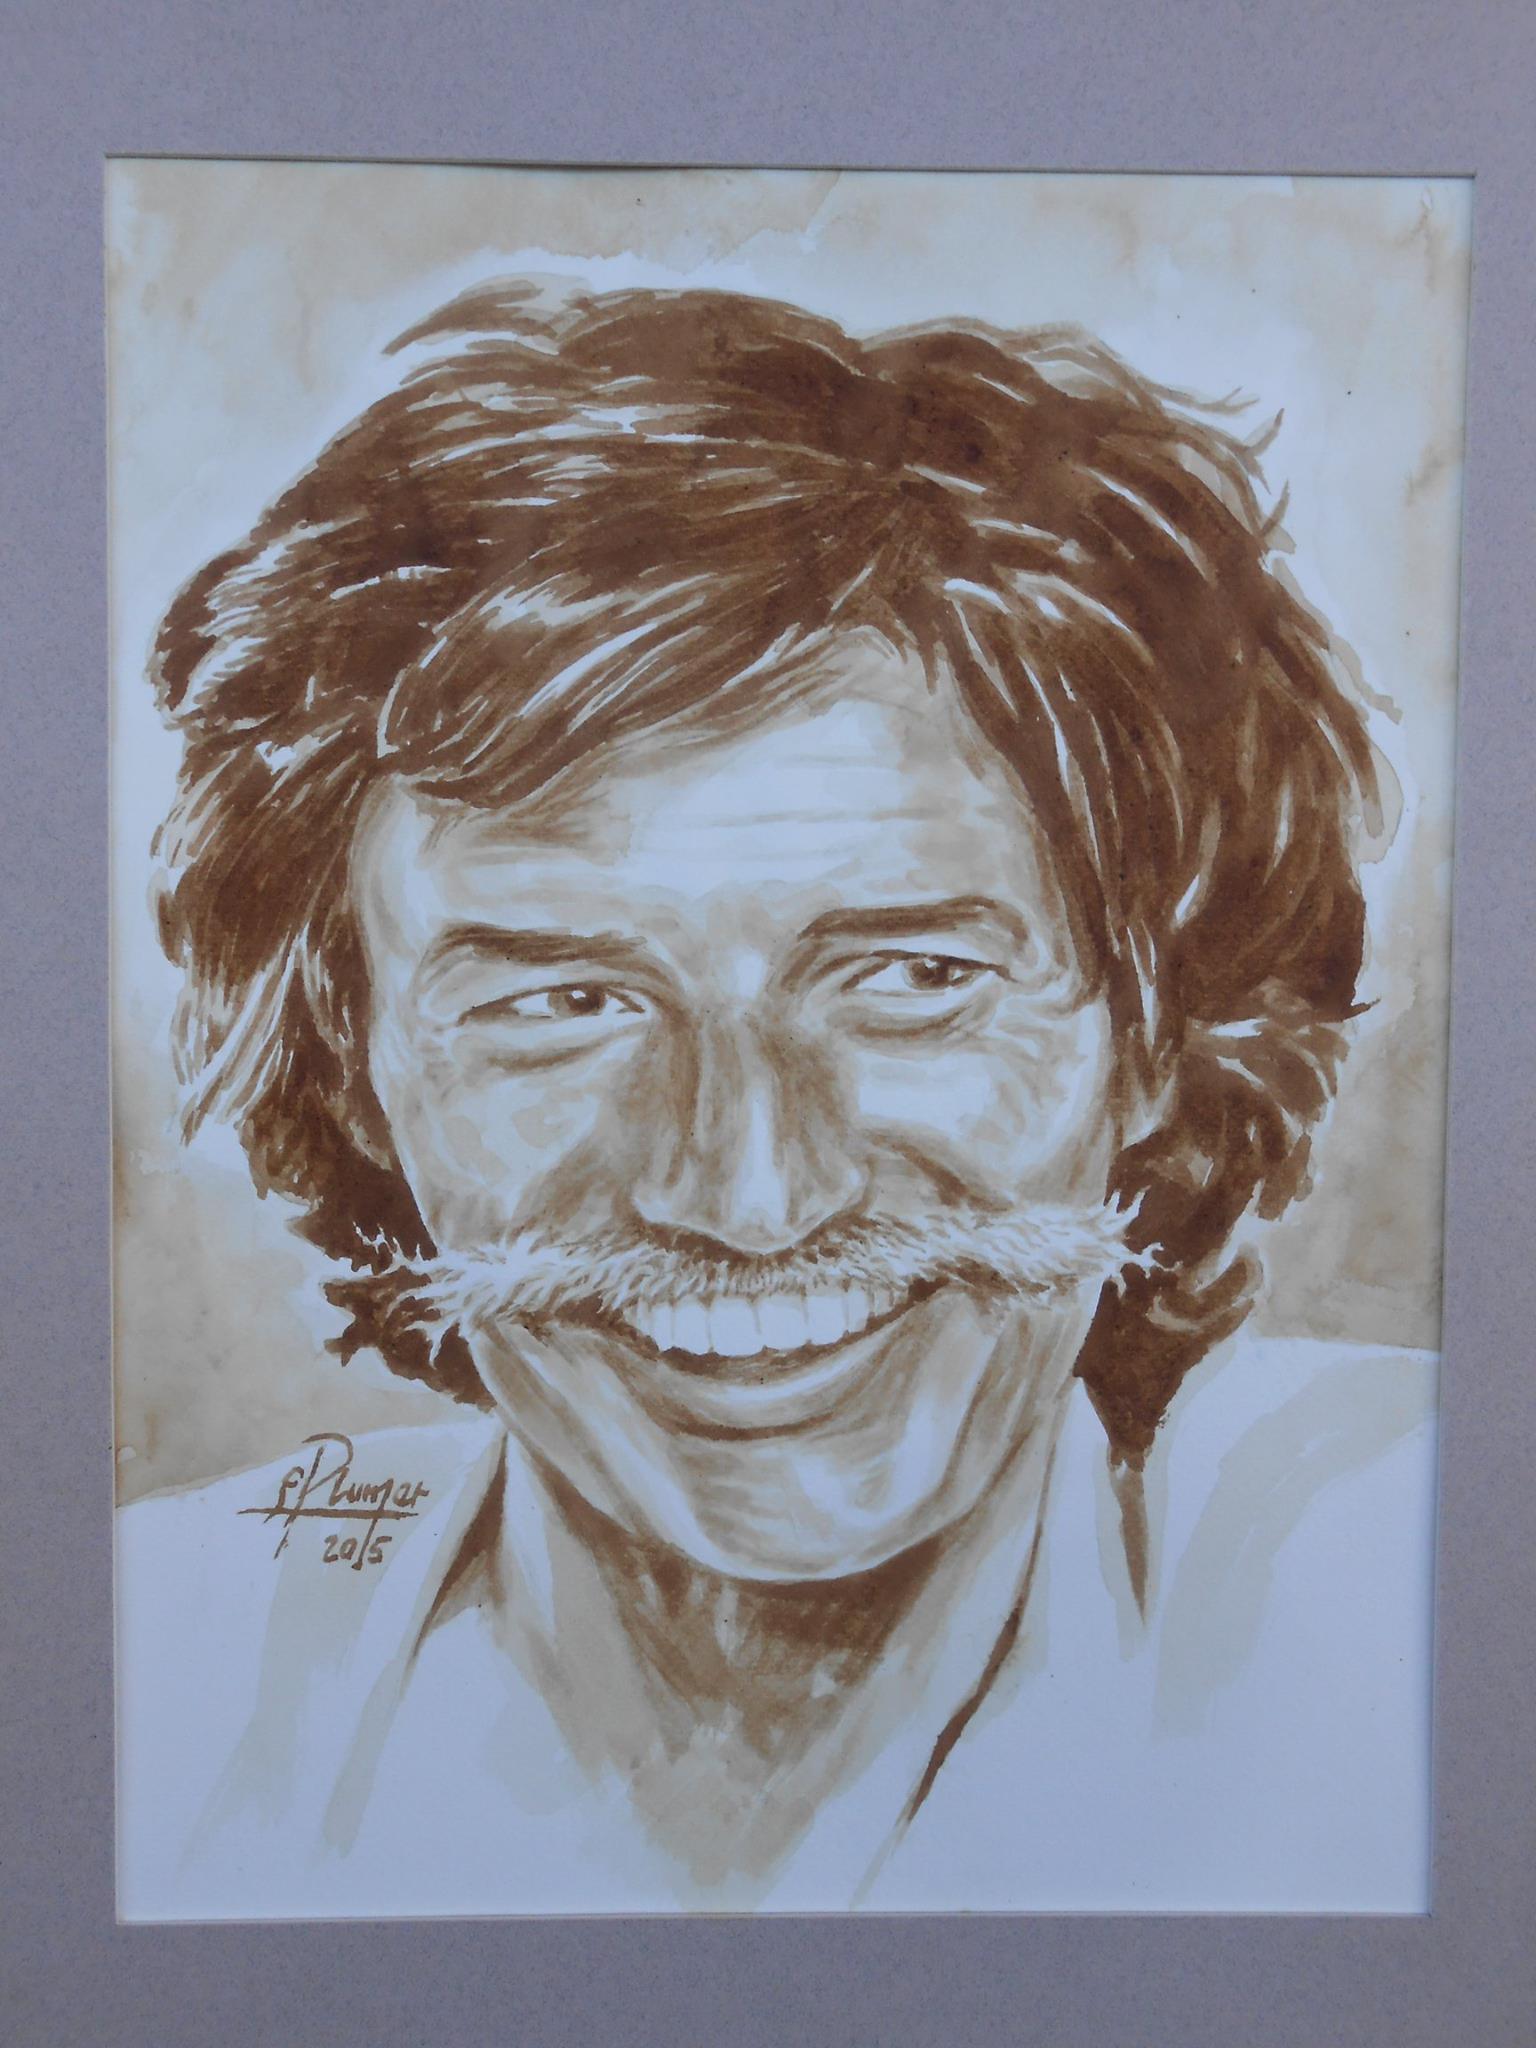 f Plumer
2015